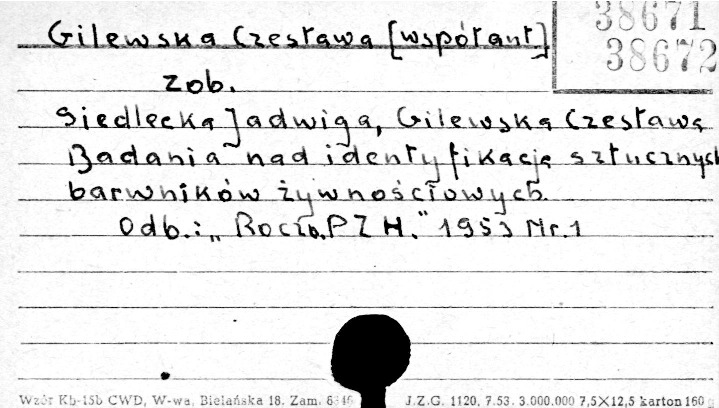 38671
38672
Gilewska Czesława [współaut]
zob.
Siedlecka Jadwiga, Gilewska Czesława
Badania nad identyfikacją sztucznych
barwników żywnościowych.
Odb.: „Roczn. PZH." 1953 Nr. 1
Wzór Kb-15b CWD, W-wa, Bielańska 18. Zam. J.Z.G. 1120, 7.53. 3.000.000 7,5×12,5 karton 160 g